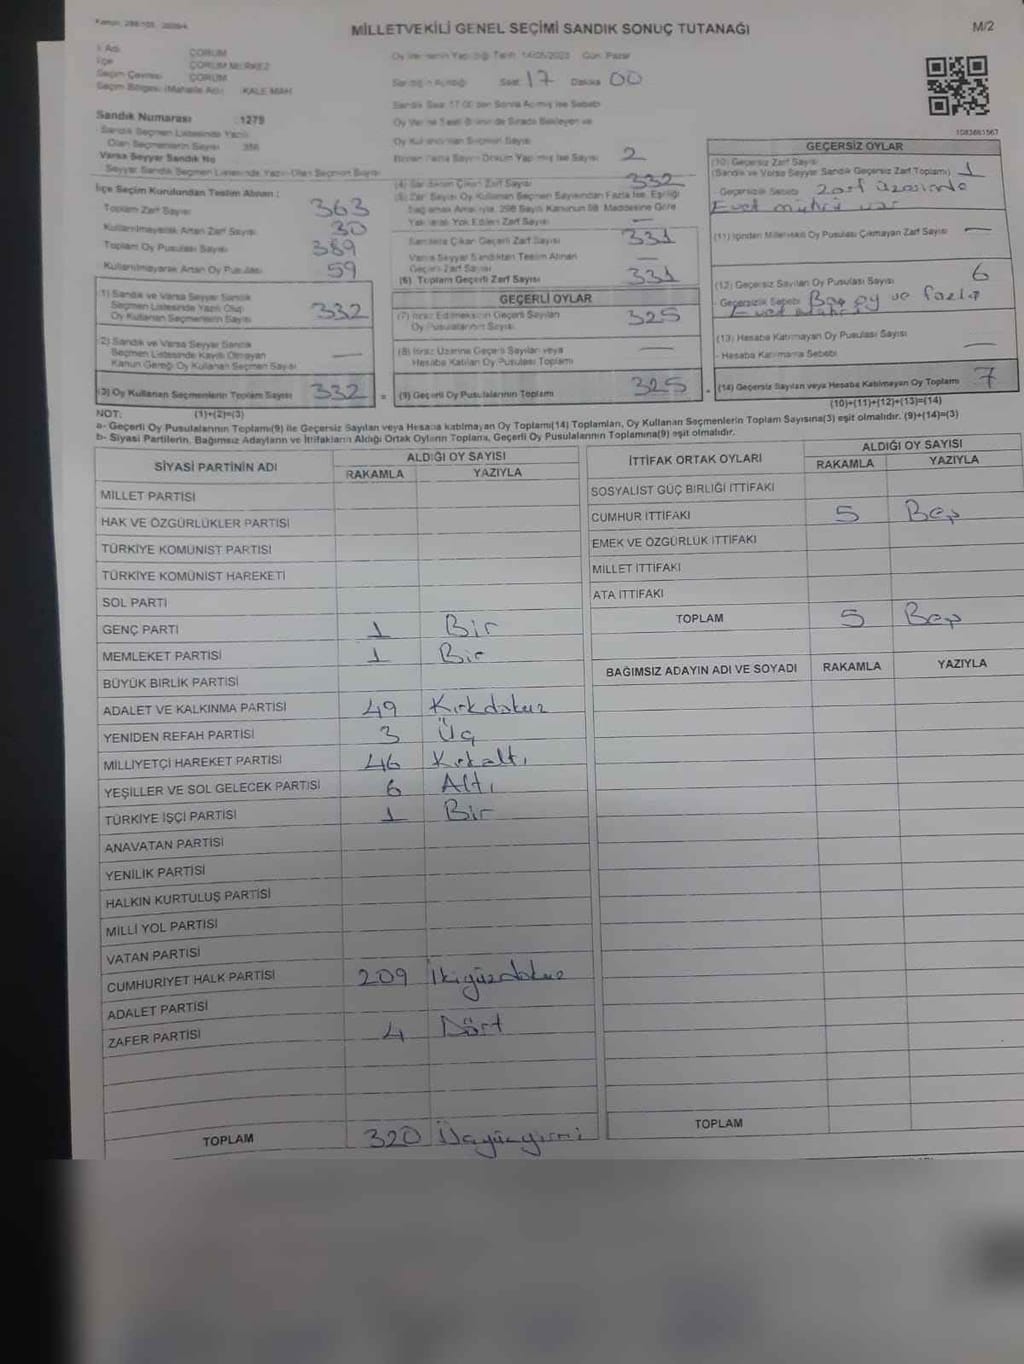 MİLLETVEKİLİ GENEL SEÇİMİ SANDIK SONUÇ TUTANAĞI
M/2
İl Adı ÇORUM
İlçe ÇORUM MERKEZ
Seçim Çevresi ÇORUM
Seçim Bölgesi (Mahalle Adı) KALE MAH
Oy Verme Yapıldığı Tarih 14/05/2023 Gün Pazar
Sandığın Açıldığı Saat 17 Dakika 00
Sandık Saat 17:00'den Sonra Açılmış İse Sebebi
Sandık Numarası 1279
Sandık Seçmen Listesinde Yazılı
Olan Seçmenlerin Sayısı
Varsa Seyyar Sandık No
Seyyar Sandık Seçmen Listesinde Yazılı Olan Seçmen Sayısı
2
1083881567
İlçe Seçim Kurulundan Teslim Alınan :
Toplam Zarf Sayısı 363
Kullanılmayarak Artan Zarf Sayısı 30
Toplam Oy Pusulası Sayısı 389
Kullanılmayarak Artan Oy Pusulası 59
(1) Sandık ve Varsa Seyyar Sandık
Seçmen Listesinde Yazılı Olup
Oy Kullanan Seçmenlerin Sayısı 332
(2) Sandık ve Varsa Seyyar Sandık
Seçmen Listesinde Kayıtlı Olmayan
Kanun Gereği Oy Kullanan Seçmen Sayısı —
(3) Oy Kullanan Seçmenlerin Toplam Sayısı 332 =
(4) Sandıktan Çıkan Zarf Sayısı 332
(5) Zarf Sayısı Oy Kullanan Seçmen Sayısından Fazla İse, Eşitliği
Sağlamak Amacıyla, 298 Sayılı Kanunun 98. Maddesine Göre
Yakılarak Yok Edilen Zarf Sayısı —
Sandıkta Çıkan Geçerli Zarf Sayısı 331
Varsa Seyyar Sandıktan Teslim Alınan
Geçerli Zarf Sayısı —
(6) Toplam Geçerli Zarf Sayısı 331
GEÇERLİ OYLAR
(7) İtiraz Edilmeksizin Geçerli Sayılan
Oy Pusulalarının Sayısı 325
(8) İtiraz Üzerine Geçerli Sayılan veya
Hesaba Katılan Oy Pusulası Toplamı —
(9) Geçerli Oy Pusulalarının Toplamı 325
GEÇERSİZ OYLAR
(10) Geçersiz Zarf Sayısı
(Sandık ve Varsa Seyyar Sandık Geçersiz Zarf Toplamı) 1
- Geçersizlik Sebebi Zarf üzerinde
Evet mührü var
(11) İçinden Milletvekili Oy Pusulası Çıkmayan Zarf Sayısı —
(12) Geçersiz Sayılan Oy Pusulası Sayısı 6
- Geçersizlik Sebebi Boş oy ve fazla
(13) Hesaba Katılmayan Oy Pusulası Sayısı —
- Hesaba Katılmama Sebebi
(14) Geçersiz Sayılan veya Hesaba Katılmayan Oy Toplamı 7
NOT: (1)+(2)=(3) (10)+(11)+(12)+(13)=(14)
a- Geçerli Oy Pusulalarının Toplamı(9) ile Geçersiz Sayılan veya Hesaba katılmayan Oy Toplamı(14) Toplamları, Oy Kullanan Seçmenlerin Toplam Sayısına(3) eşit olmalıdır. (9)+(14)=(3)
b- Siyasi Partilerin, Bağımsız Adayların ve İttifakların Aldığı Ortak Oyların Toplamı, Geçerli Oy Pusulalarının Toplamına(9) eşit olmalıdır.
SİYASİ PARTİNİN ADI ALDIĞI OY SAYISI
RAKAMLA YAZIYLA
MİLLET PARTİSİ
HAK VE ÖZGÜRLÜKLER PARTİSİ
TÜRKİYE KOMÜNİST PARTİSİ
TÜRKİYE KOMÜNİST HAREKETİ
SOL PARTİ
GENÇ PARTİ 1 Bir
MEMLEKET PARTİSİ 1 Bir
BÜYÜK BİRLİK PARTİSİ
ADALET VE KALKINMA PARTİSİ 49 Kırkdokuz
YENİDEN REFAH PARTİSİ 3 Üç
MİLLİYETÇİ HAREKET PARTİSİ 46 Kırkaltı
YEŞİLLER VE SOL GELECEK PARTİSİ 6 Altı
TÜRKİYE İŞÇİ PARTİSİ 1 Bir
ANAVATAN PARTİSİ
YENİLİK PARTİSİ
HALKIN KURTULUŞ PARTİSİ
MİLLİ YOL PARTİSİ
VATAN PARTİSİ
CUMHURİYET HALK PARTİSİ 209 İkiyüzdokuz
ADALET PARTİSİ
ZAFER PARTİSİ 4 Dört
TOPLAM 320 Üçyüzyirmi
İTTİFAK ORTAK OYLARI ALDIĞI OY SAYISI
RAKAMLA YAZIYLA
SOSYALİST GÜÇ BİRLİĞİ İTTİFAKI
CUMHUR İTTİFAKI 5 Beş
EMEK VE ÖZGÜRLÜK İTTİFAKI
MİLLET İTTİFAKI
ATA İTTİFAKI
TOPLAM 5 Beş
BAĞIMSIZ ADAYIN ADI VE SOYADI RAKAMLA YAZIYLA
TOPLAM